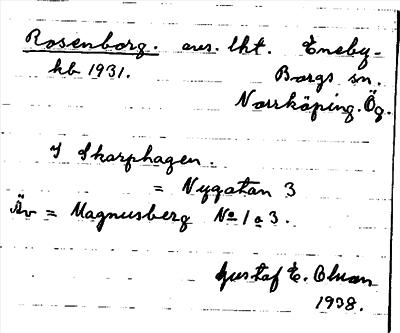 Rosenborg. avs. lht. Eneby-
kb 1931. Borgs sn.
Norrköping. Ög.
I Skarphagen.
= Nygatan 3
Äv = Magnusberg No 1 a 3.
Gustaf E. Olson
1938.